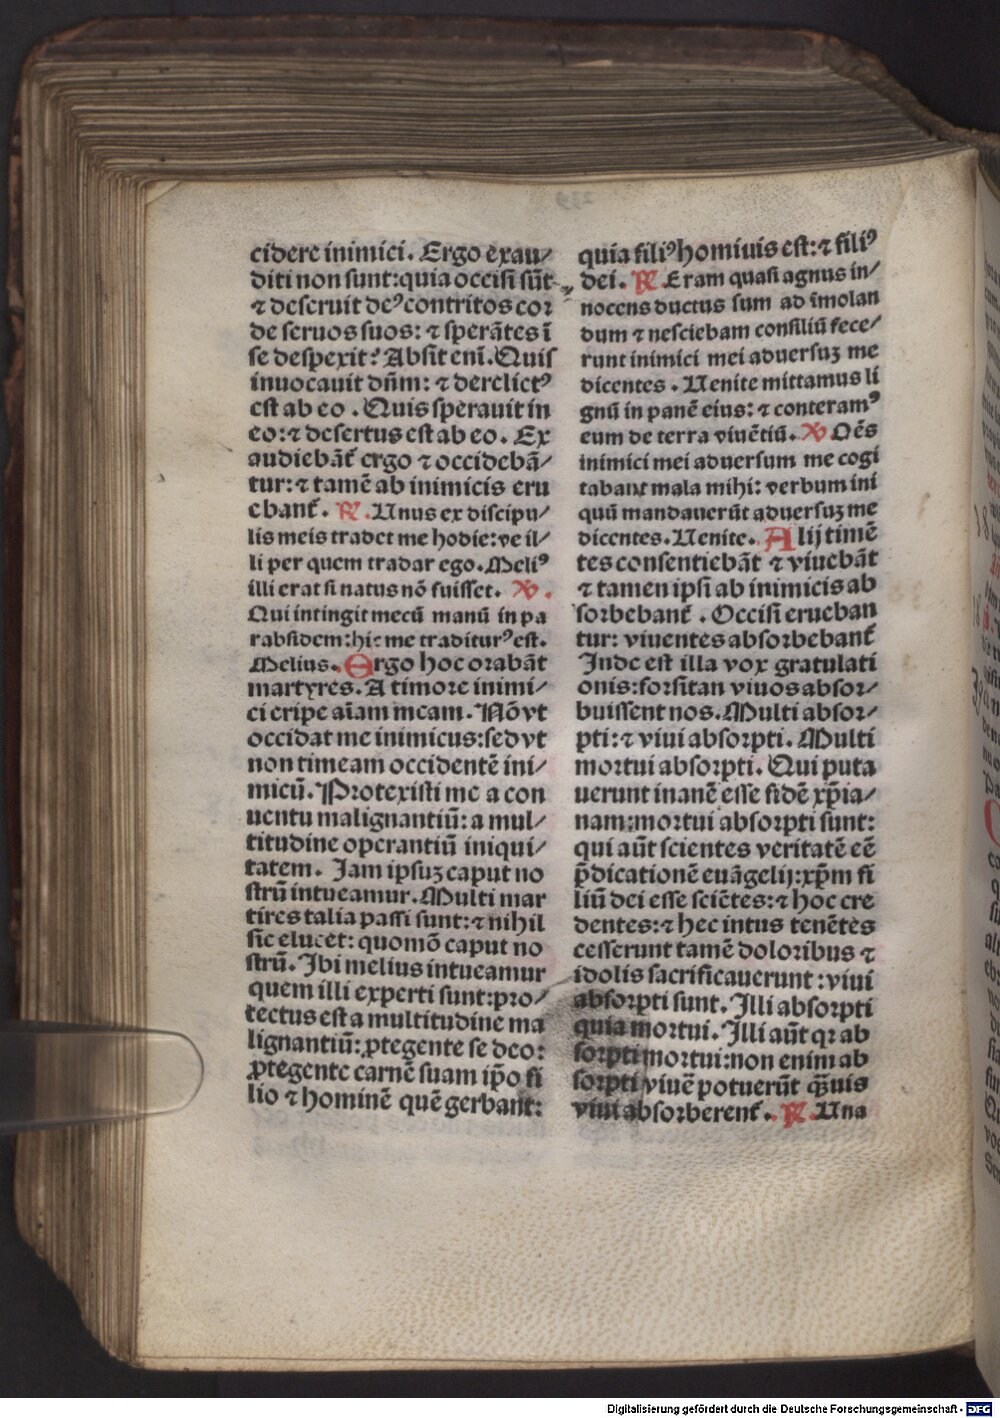 cidere inimici. Ergo exau/
diti non sunt:quia occisi sūt
⁊ deseruit deꝰ contritos cor
de seruos suos: ⁊ sperātes ī
se despexit? Absit enī. Quis
inuocauit dn̄m: ⁊ derelictꝰ
est ab eo . Quis sperauit in
eo:⁊ desertus est ab eo. Ex
audiebāt᷑ ergo ⁊ occidebā/
tur:⁊ tamē ab inimicis eru
ebant᷑. ℟. Unus ex discipu/
lis meis tradet me hodie:ve il/
li per quem tradar ego. Meliꝰ
illi erat si natus nō fuisset. ℣.
Qui intingit mecū manū in pa
rabsidem:hic me traditurꝰ est.
Melius. Ergo hoc orabāt
martyres. A timore inimi/
ci eripe aīam meam. Nō vt
occidat me inimicus:sed vt
non timeam occidentē ini/
micū. Protexisti me a con
uentu malignantiū: a mul/
titudine operantiū iniqui/
tatem. Jam ipsuꝫ caput no
strū intueamur. Multi mar
tires talia passi sunt:⁊ nihil
sic elucet: quomō caput no
strū. Ibi melius intueamur
quem illi experti sunt:pro/
tectus est a multitudine ma
lignantiū: ꝓtegente se deo:
ꝓtegente carnē suam ip̄o fi
lio ⁊ hominē quē gerbant:
quia filiꝰ homiuis est:⁊ filiꝰ
dei. ℟. Eram quasi agnus in/
nocens ductus sum ad īmolan
dum ⁊ nesciebam consiliū fece/
runt inimici mei aduersuꝫ me
dicentes . Uenite mittamus li
gnū in panē eius: ⁊ conteramꝰ
eum de terra viuētiū. ℣ Oēs
inimici mei aduersum me cogi
tabant mala mihi: verbum ini
quū mandauerūt aduersuꝫ me
dicentes. Uenite. Alij timē
tes consentiebāt ⁊ viuebāt
⁊ tamen ipsi ab inimicis ab
sorbebant᷑ . Occisi erueban
tur: viuentes absorbebant᷑
Inde est illa vox gratulati
onis:forsitan viuos absor/
buissent nos. Multi absor/
pti:⁊ viui absorpti. Multi
mortui absorpti. Qui puta
uerunt inanē esse fidē xp̄ia/
nam:mortui absorpti sunt:
qui aūt scientes veritatē eē
p̄dicationē euāgelij:xp̄m fi
liū dei esse sciētes:⁊ hoc cre
dentes:⁊ hec intus tenētes
cesserunt tamē doloribus ⁊
idolis sacrificauerunt :viui
absorpti sunt. Illi absorpti
quia mortui. Illi aūt qꝛ ab
sorpti mortui:non enim ab
sorpti viuē potuerūt qͣuis
viui absorberent᷑. ℟. Una
Digitalisierung gefördert durch die Deutsche Forschungsgemeinschaft - DFG